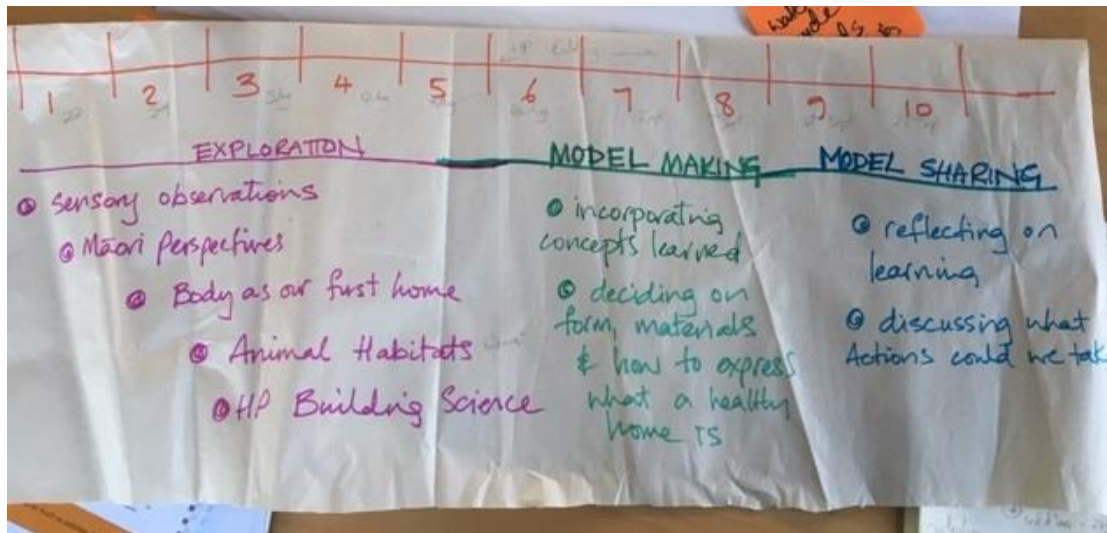 1 2 3 4 5 6 7 8 9 10
EXPLORATION
sensory observations
Māori Perspectives
Body as our first home
Animal Habitats
HP Building Science
MODEL MAKING
incorporating
concepts learned
deciding on
form, materials
& how to express
what a healthy
home is
MODEL SHARING
reflecting on
learning
discussing what
Actions could we tak